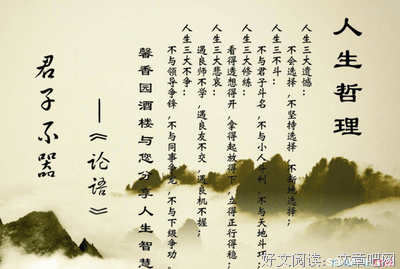 人生哲理
人生三大遗憾:
不会选择,不坚持选择,不断地选择;
人生三不斗:
不与君子斗名,不与小人斗利,不与天地斗巧
人生三大修炼:
看得透想得开,拿得起放得下,立得正行得稳;
人生三大悲哀:
遇良师不学,遇良友不交,遇良机不握;
人生三大不争:
不与领导争锋,不与同事争宠,不与下级争功。
馨香园酒楼与您分享人生智慧
——《论语》
君子不器
好文阅读:文章吧网